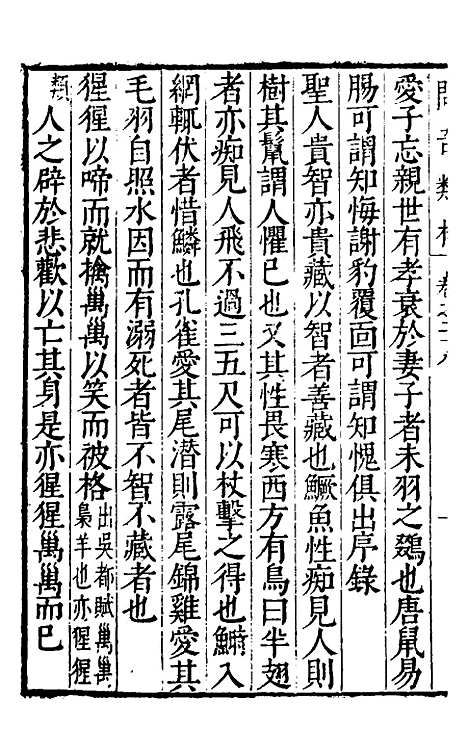 愛子忘親世有孝衰於妻子者未羽之鷄也唐鼠易
腸可謂知悔謝豹覆面可謂知愧俱出序錄
聖人貴智亦貴藏以智者善藏也鱖魚性痴見人則
樹其鬣謂人懼已也又其性畏寒西方有鳥曰半翅
者亦痴見人飛不過三五尺可以杖擊之得也鰣入
網輒伏者惜鱗也孔雀愛其尾潜則露尾錦雞愛其
毛羽自照水因而有溺死者皆不智不藏者也
猩猩以啼而就擒𤢖𤢖以笑而被格出吳都賦𤢖𤢖
梟羊也亦猩猩
類人之辟於悲歡以亡其身是亦猩猩𤢖𤢖而已